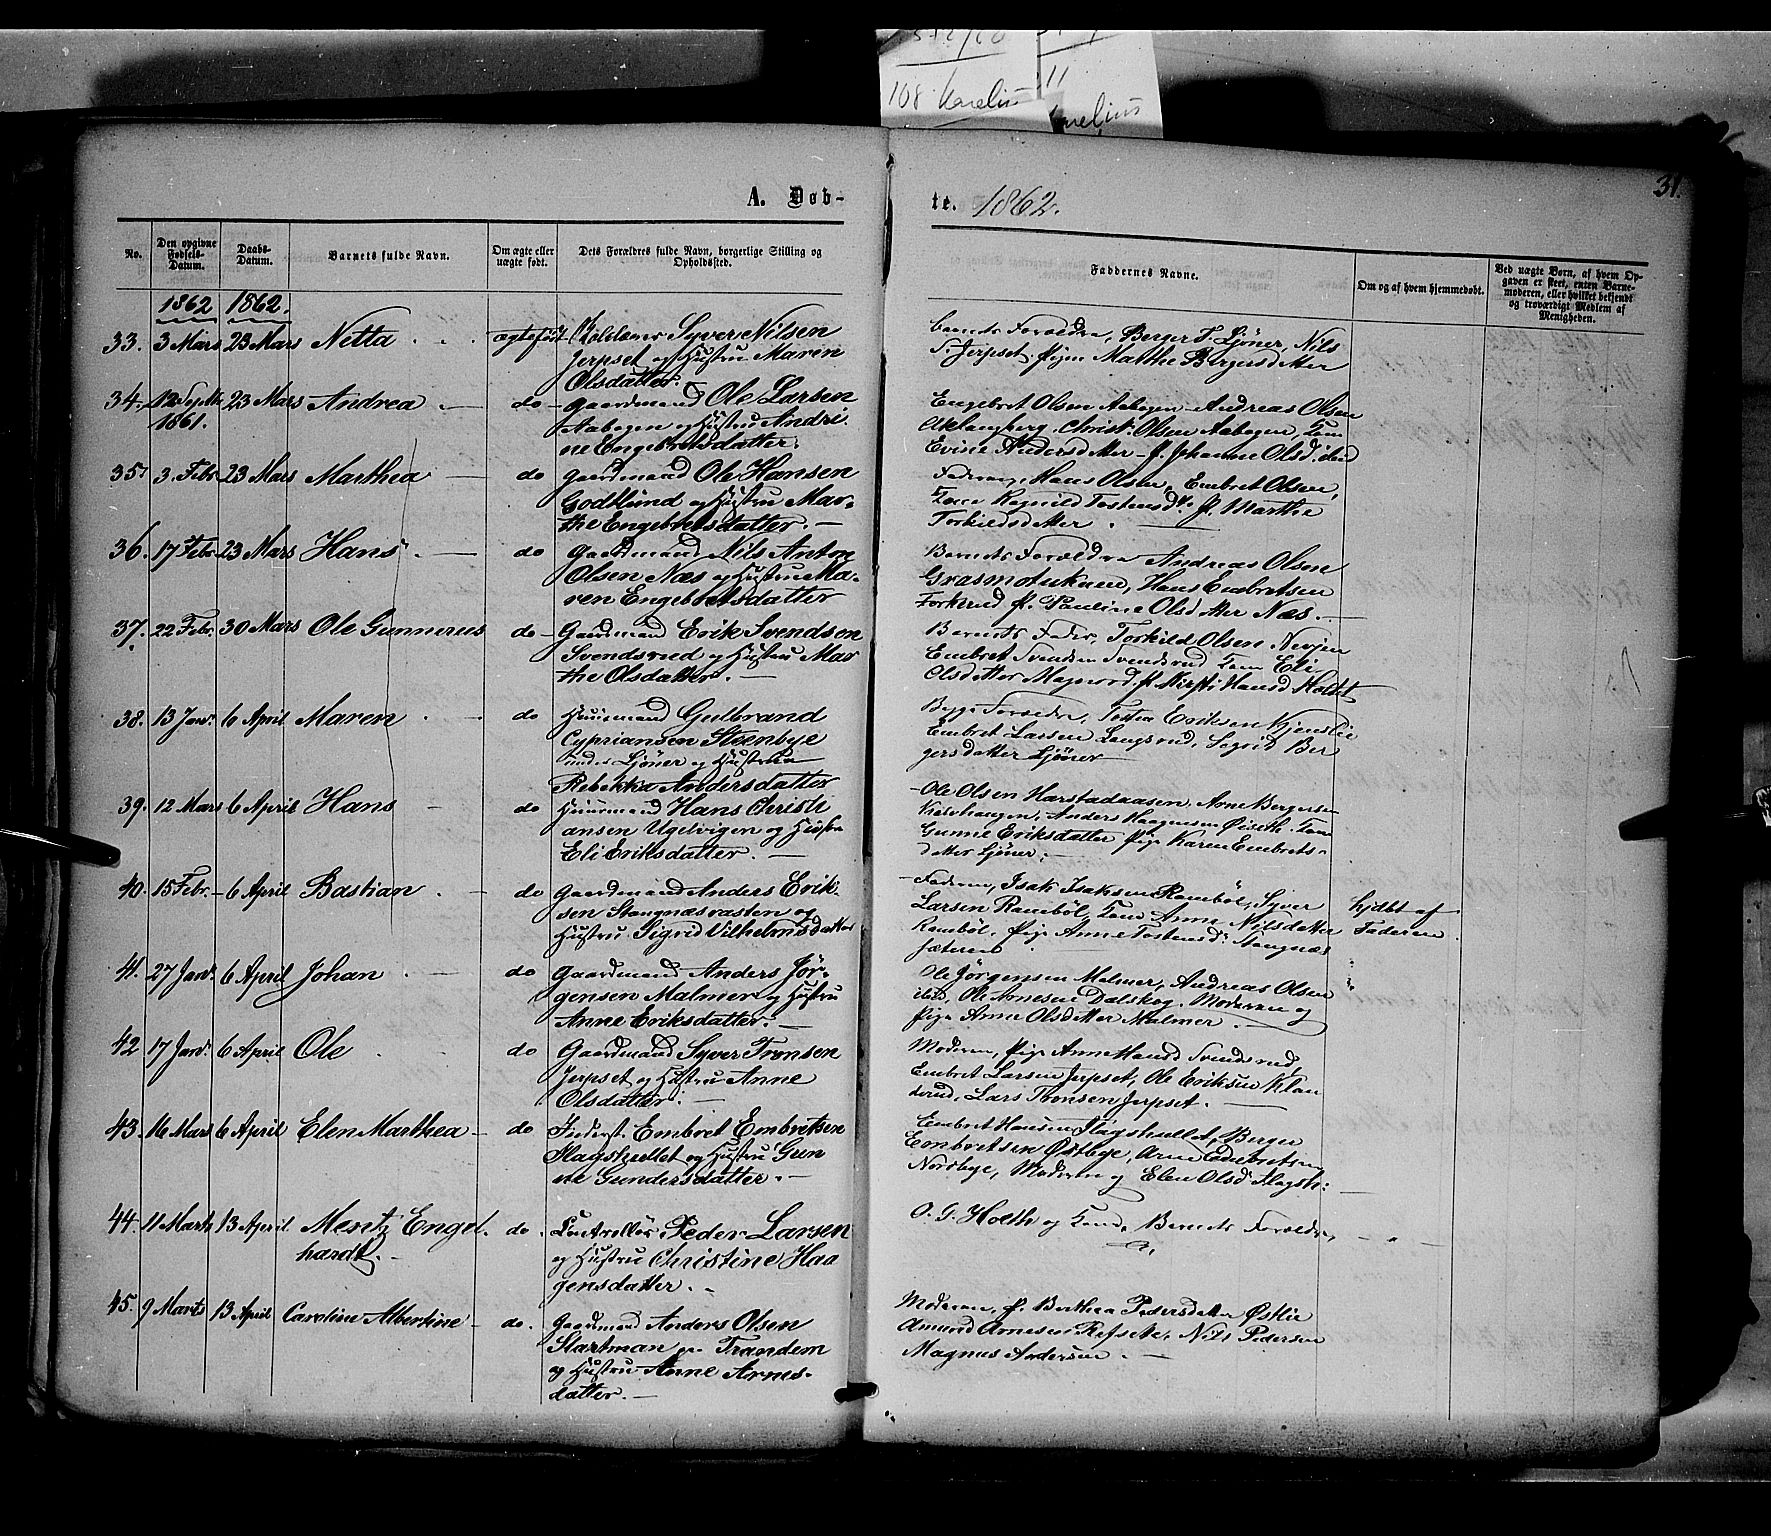 108
11
A. Døb-
te. 1862.
31.
No.
Den opgivne Fødsels-Datum.
Daabs-Datum.
Barnets fulde Navn.
Om ægte eller uægte født.
Dets Forældres fulde Navn, borgerlige Stilling og Opholdssted.
Faddernes Navne.
Om og af hvem hjemmedøbt.
Ved uægte Børn, af hvem Opgaven er skeet, enten Barnemoderen, eller hvilket bekjendt og troværdigt Medlem af Menigheden.
1862 1862.
33. 3 Mars 23 Mars Netta ægtefødt Syver Nilsen
Jerpset og Hustru Maren
Olsdatter.
barnets Forældre, Berger T. Ljøner, Nils
S. Jerpset, Pige Marthe Bergersdatter
34. 23 Mars Andrea do Gaardmand Ole Larsen
1861. Aabogen og Hustru Andri
ne Engebretsdatter.
Engebret Olsen Aabogen Andreas Olsen
Christ. Olsen Aabogen,
Evine Andersdatter P. Johanne Olsd.
35 3. Febr 23 Mars Marthea do Gaardmand Ole Hansen
Godtlund og Hustru Mar-
the Engebretsdatter.
Faderen, Hans Olsen, Embret Olsen,
Kone Ragnild Tostensd. P. Marthe
Torkildsdatter
36. 17 Febr 23 Mars Hans do Gaardmand Nils Anton
Olsen Næs og Hustru Ma-
ren Engebretsdatter
Barnets Forældre Andreas Olsen
Hans Embretsen
P. Pauline Olsdatter Næs.
37. 22 Febr. 30 Mars Ole Gunnerus do Gaardmand Erik Svendsen
Svendsrud og Hustru Mar
the Olsdatter.
Barnets Fader, Torkild Olsen
Embret Svendsen Svendsrud Kone Eli
Olsdatter P. Kirsti Hansd Holdt
38. 13 Janr. 6 April Maren do Huusmand Gulbrand
Cypriansen Steenbye
under Ljøner og Hustru
Rebekka Andersdatter
Begge Forældre, Tosten Eriksen
Embret Larsen Langsrud, Sigrid Ber
gersdatter Ljøner
39. 12 Mars 6 April Hans do Huusmand Hans Christi
ansen Ugelvigen og Hustru
Eli Eriksdatter.
Ole Olsen Harstadaasen, Arne Bergersen
Anders Haagensen Øiseth. Kone
Gunne Eriksdatter Pige Karen Embrets-
datter Ljøner.
40. 15 Febr. 6 April Bastian do Gaardmand Anders Erik-
sen Stangnæsvasten og
Hustru Sigrid Vilhelmsdatter
Faderen, Isak Isaksen Rambøl, Syver
Larsen Rambøl, Kone Anne Nilsdatter
Rambøl, Pige Anne Tostensd. Stangnæs
sæteren
hjdbt af
Faderen
41. 27 Janr. 6 April Johan do Gaardmand Anders Jør-
gensen Malmer og Hustru
Anne Eriksdatter.
Ole Jørgensen Malmer, Andreas Olsen
ibid, Ole Arnesen Dalskog. Moderen og
Pige Anne Olsdatter Malmer.
42 17 Janr. 6 April Ole do Gaardmand Syver Tronsen
Jerpset og Hustru Anne
Olsdatter.
Moderen, Pige Anne Hansd Svendsrud,
Embret Larsen Jerpset, Ole Eriksen Klan
derud, Lars Tronsen Jerpset.
43. 16 Mars 6 April Elen Marthea do Inderst. Embret Embretsen
Flagstvellet og Hustru Gun
ne Gundersdatter.
Embret Hansen Flagstvellet, Berger
Embretsen Østbye, Arne Embretsen
Nordbye, Moderen og Elen Olsd Flagst:
44. 11 Marts 13 April Meritz Engel
hardt. do. Controllør Peder Larsen
og Hustru Christine Haa
gensdatter.
O. G. Holth og Kone, Barnets Forældre
45. 9 Marts 13 April Caroline Albertine do. Gaardmand Anders Olsen
Slartman Trandem
og Hustru Anne Arnes-
datter.
Moderen, P. Berthea Pedersdatter Østlie
Amund Arnesen Refsete, Nils Pedersen
Magnus Andersen.